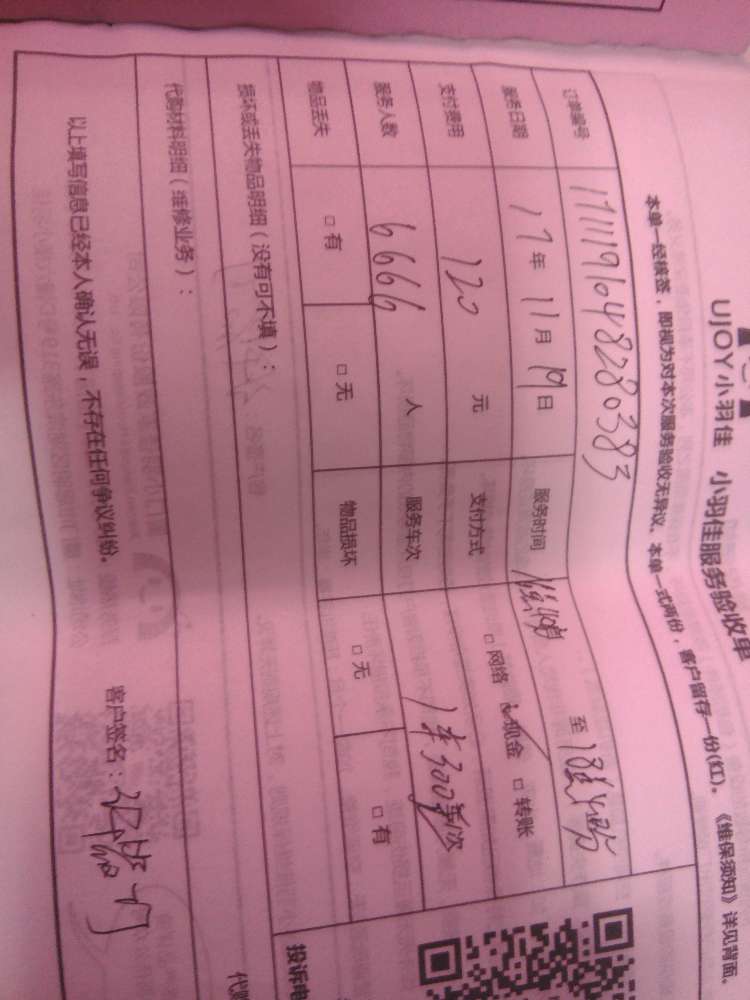 UJOY小羽佳 小羽佳服务验收单
本单一经核签，即视为对本次服务验收无异议。本单一式两份，客户留存一份(红)。《维保须知》详见背面。
订单编号 171119104828280383
服务日期 17年 11月 19日 服务时间 至
支付费用 120 元 支付方式 □网络 ☑现金 □转账
服务人数 6666 人 服务车次 1车300每次
物品丢失 □有 □无 物品损坏 □无 □有
损坏或丢失物品明细（没有可不填）：
代购材料明细（维修业务）：
以上填写信息已经本人确认无误，不存在任何争议纠纷。
客户签名：
投诉电
代购